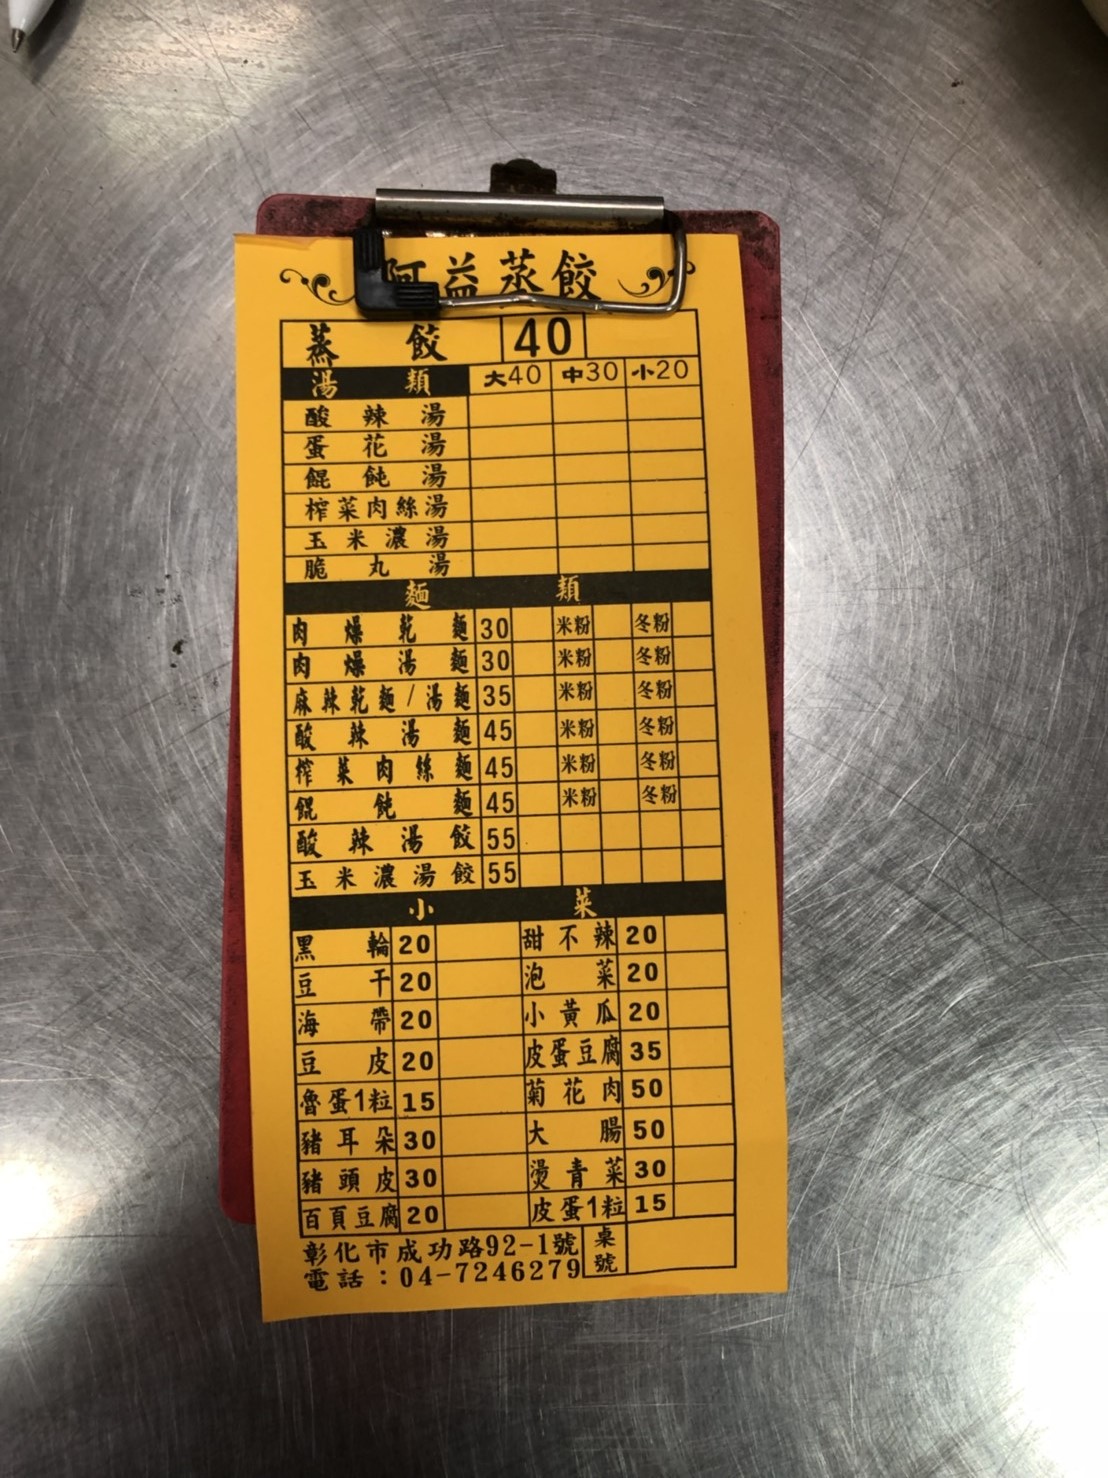 阿益蒸餃
蒸餃 40
湯類 大40 中30 小20
酸辣湯
蛋花湯
餛飩湯
榨菜肉絲湯
玉米濃湯
脆丸湯
麵類
肉燥乾麵 30 米粉 冬粉
肉燥湯麵 30 米粉 冬粉
麻辣乾麵/湯麵 35 米粉 冬粉
酸辣湯麵 45 米粉 冬粉
榨菜肉絲麵 45 米粉 冬粉
餛飩麵 45 米粉 冬粉
酸辣湯餃 55
玉米濃湯餃 55
小菜
黑輪 20 甜不辣 20
豆干 20 泡菜 20
海帶 20 小黃瓜 20
豆皮 20 皮蛋豆腐 35
魯蛋1粒 15 菊花肉 50
豬耳朵 30 大腸 50
豬頭皮 30 燙青菜 30
百頁豆腐 20 皮蛋1粒 15
彰化市成功路92-1號 桌號
電話：04-7246279